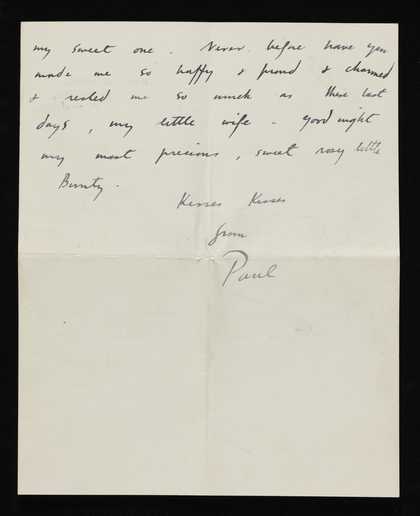 my sweet one. Never before have you
made me so happy & proud & charmed
& rested me so much as these last
days, my little wife - good night
my most precious, sweet rosy little
Bunty.
Kisses Kisses
from
Paul